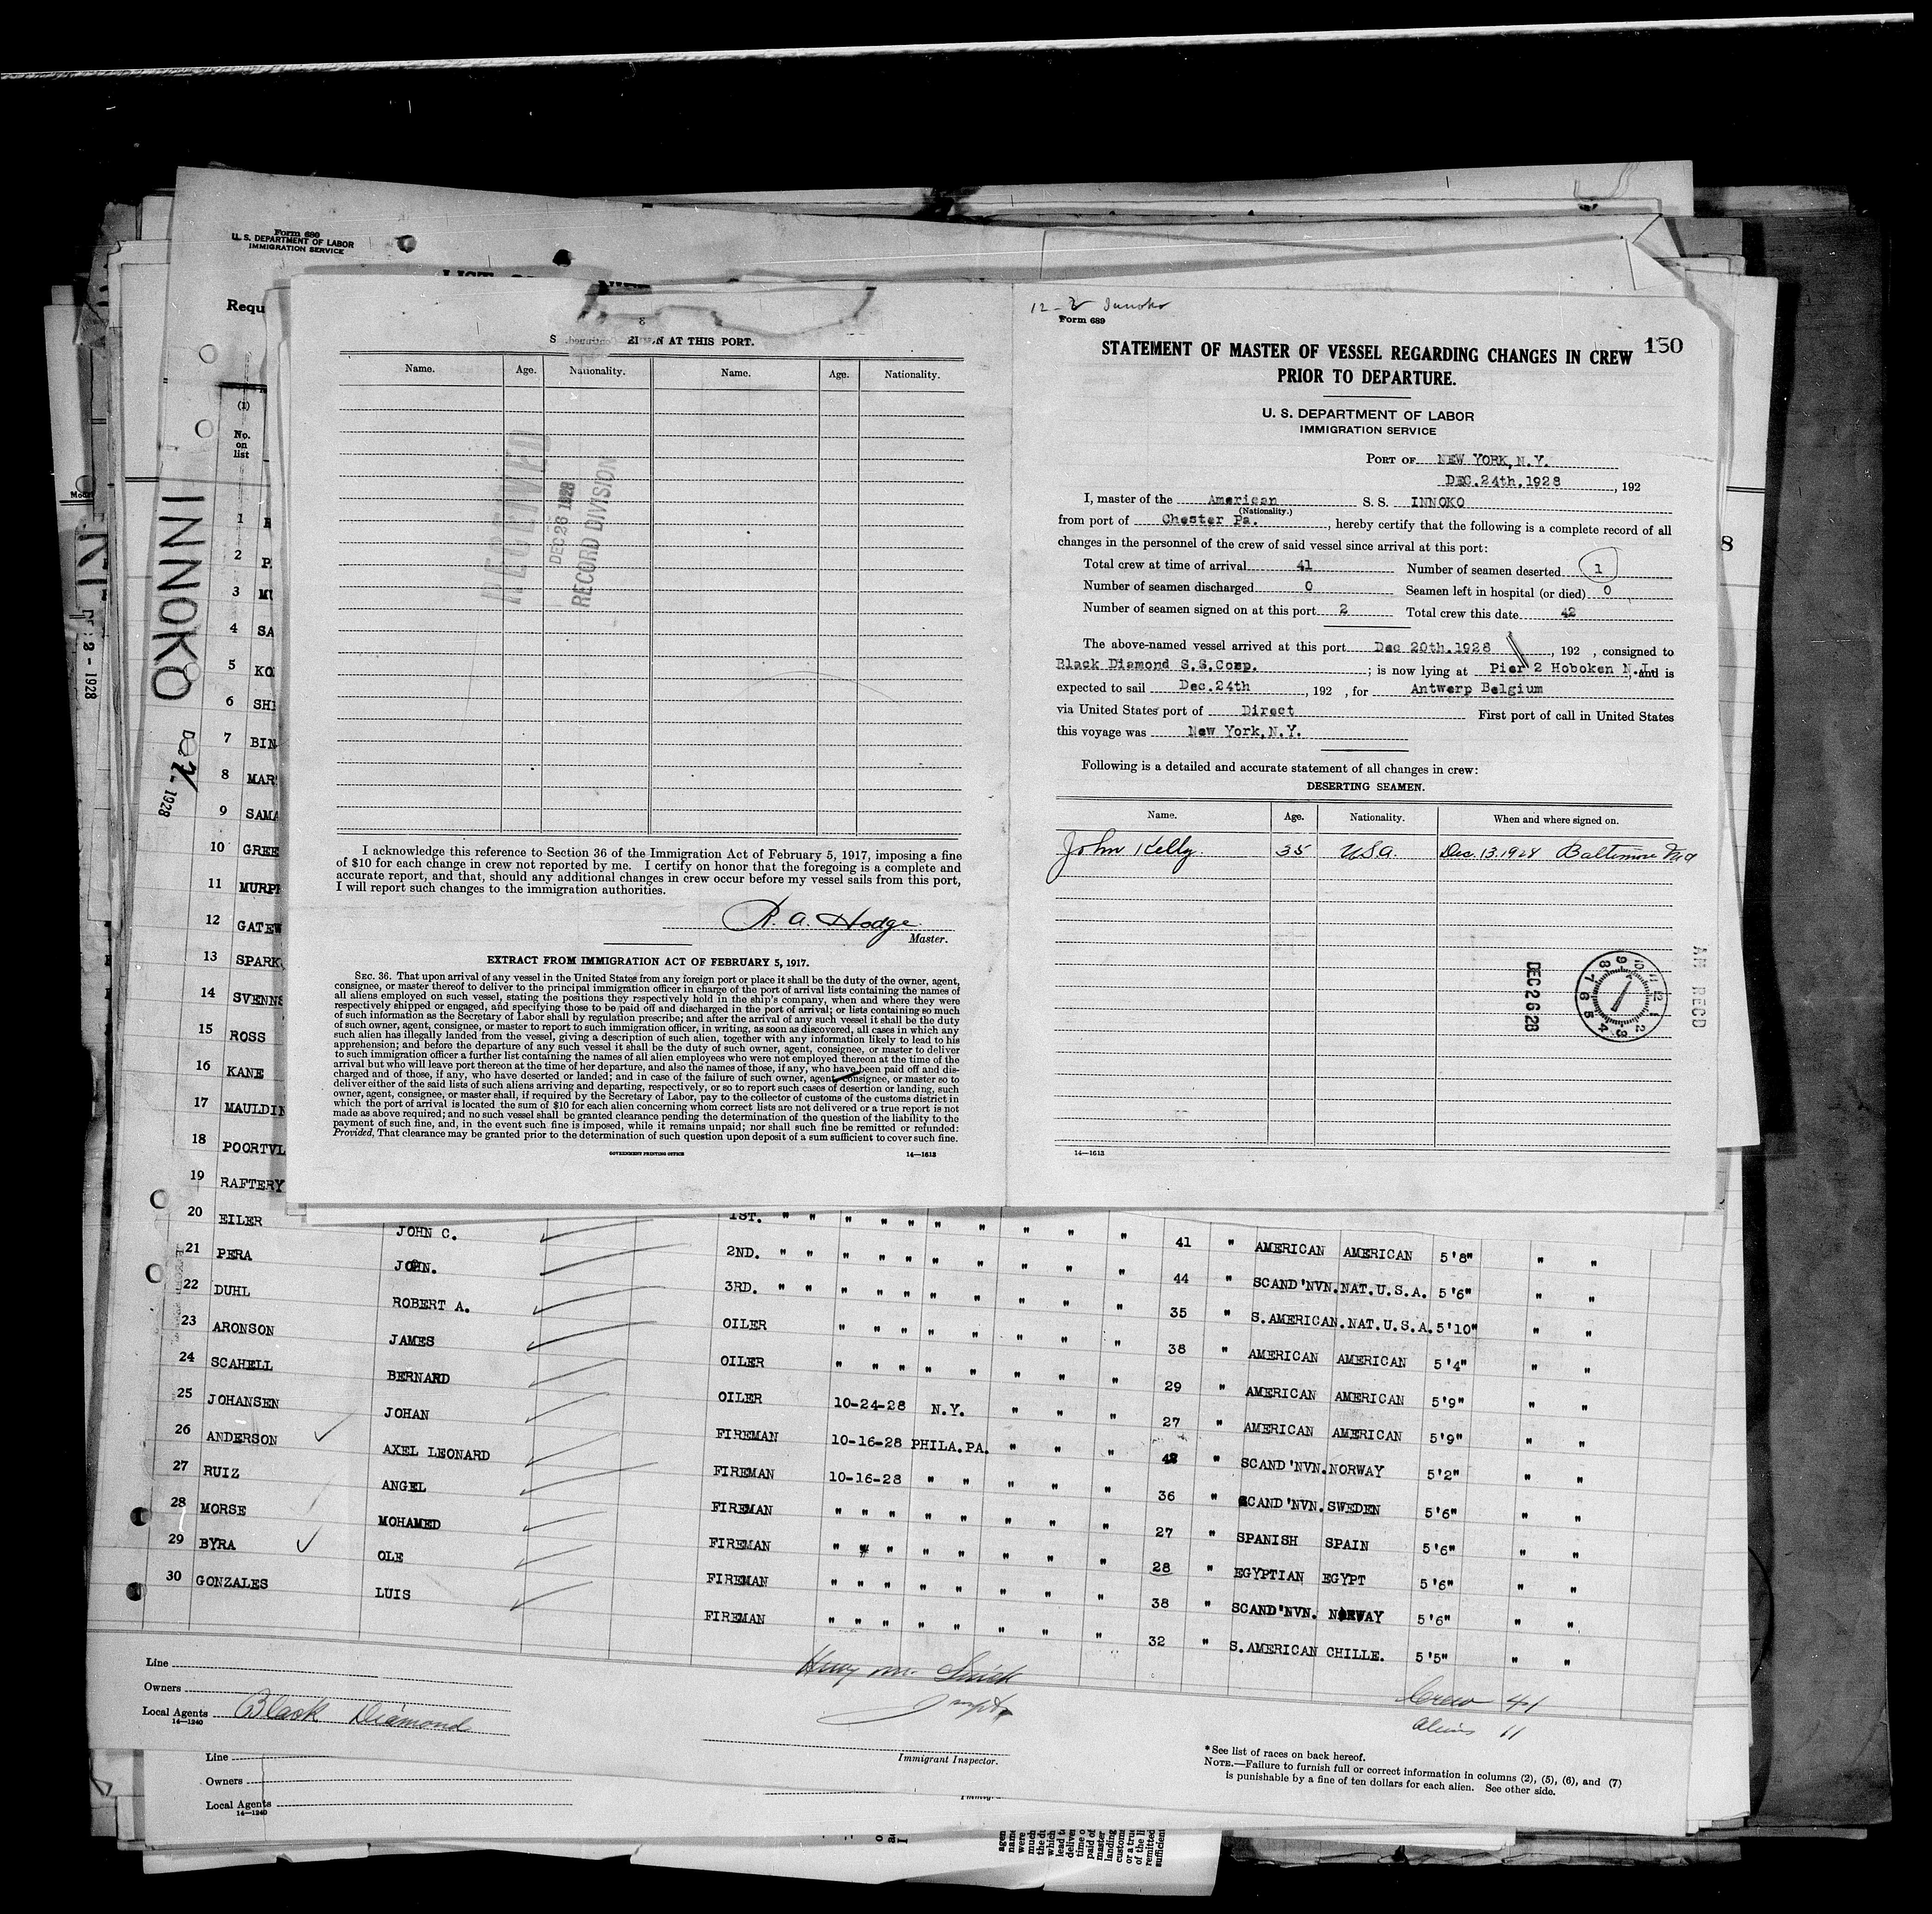 Form 680
U. S. DEPARTMENT OF LABOR
IMMIGRATION SERVICE
Requ
(1)
No.
on
list
INNOKO
1928
EIGN AT THIS PORT.
Name. Age. Nationality. Name. Age. Nationality.
RECEIVED
DEC 26 1928
RECORD DIVISION
I acknowledge this reference to Section 36 of the Immigration Act of February 5, 1917, imposing a fine
of $10 for each change in crew not reported by me. I certify on honor that the foregoing is a complete and
accurate report, and that, should any additional changes in crew occur before my vessel sails from this port,
I will report such changes to the immigration authorities.
R. A. Hodge
Master.
EXTRACT FROM IMMIGRATION ACT OF FEBRUARY 5, 1917.
SEC. 36. That upon arrival of any vessel in the United States from any foreign port or place it shall be the duty of the owner, agent,
consignee, or master thereof to deliver to the principal immigration officer in charge of the port of arrival lists containing the names of
all aliens employed on such vessel, stating the positions they respectively hold in the ship's company, when and where they were
respectively shipped or engaged, and specifying those to be paid off and discharged in the port of arrival; or lists containing so much
of such information as the Secretary of Labor shall by regulation prescribe; and after the arrival of any such vessel it shall be the duty
of such owner, agent, consignee, or master to report to such immigration officer, in writing, as soon as discovered, all cases in which any
such alien has illegally landed from the vessel, giving a description of such alien, together with any information likely to lead to his
apprehension; and before the departure of any such vessel it shall be the duty of such owner, agent, consignee, or master to deliver
to such immigration officer a further list containing the names of all alien employees who were not employed thereon at the time of the
arrival but who will leave port thereon at the time of her departure, and also the names of those, if any, who have been paid off and dis-
charged and of those, if any, who have deserted or landed; and in case of the failure of such owner, agent, consignee, or master so to
deliver either of the said lists of such aliens arriving and departing, respectively, or so to report such cases of desertion or landing, such
owner, agent, consignee, or master shall, if required by the Secretary of Labor, pay to the collector of customs of the customs district in
which the port of arrival is located the sum of $10 for each alien concerning whom correct lists are not delivered or a true report is not
made as above required; and no such vessel shall be granted clearance pending the determination of the question of the liability to the
payment of such fine, and, in the event such fine is imposed, while it remains unpaid; nor shall such fine be remitted or refunded:
Provided, That clearance may be granted prior to the determination of such question upon deposit of a sum sufficient to cover such fine.
GOVERNMENT PRINTING OFFICE 14—1613
12- Innoko
Form 689
150
STATEMENT OF MASTER OF VESSEL REGARDING CHANGES IN CREW
PRIOR TO DEPARTURE.
U. S. DEPARTMENT OF LABOR
IMMIGRATION SERVICE
PORT OF NEW YORK, N.Y.
DEC.24th.1928, 192
I, master of the American S. S. INNOKO
(Nationality.)
from port of Chester Pa., hereby certify that the following is a complete record of all
changes in the personnel of the crew of said vessel since arrival at this port:
Total crew at time of arrival 41 Number of seamen deserted 1
Number of seamen discharged 0 Seamen left in hospital (or died) 0
Number of seamen signed on at this port 2 Total crew this date 42
The above-named vessel arrived at this port Dec 20th.1928, 192 , consigned to
Black Diamond S.S.Corp. ; is now lying at Pier 2 Hoboken N.J. and is
expected to sail Dec.24th, 192 , for Antwerp Belgium
via United States port of Direct First port of call in United States
this voyage was New York, N.Y.
Following is a detailed and accurate statement of all changes in crew:
DESERTING SEAMEN.
Name. Age. Nationality. When and where signed on.
John Kelly. 35 USA. Dec. 13. 1928 Baltimore Md
DEC 26 28
AM RECD
14—1613
1
2 P
3 MU
4 SA
5 KO
6 SH
7 BIN
8 MAR
9 SAMA
10 GREE
11 MURPH
12 GATEW
13 SPARK
14 SVENNS
15 ROSS
16 KANE
17 MAULDIN
18 POORTVL
19 RAFTERY
20 EILER JOHN C. 1ST. " " " " " " " " " " 41 " AMERICAN AMERICAN 5'8" " "
21 PERA JOHN. 2ND. " " " " " " " " " " 44 " SCAND'NVN. NAT.U.S.A. 5'6" " "
22 DUHL ROBERT A. 3RD. " " " " " " " " " " 35 " S.AMERICAN. NAT.U.S.A. 5'10" " "
23 ARONSON JAMES OILER " " " " " " " " 38 " AMERICAN AMERICAN 5'4" " "
24 SCAHELL BERNARD OILER " " " " " " " " 29 " AMERICAN AMERICAN 5'9" " "
25 JOHANSEN JOHAN OILER 10-24-28 N.Y. " " " 27 " AMERICAN AMERICAN 5'9" " "
26 ANDERSON AXEL LEONARD FIREMAN 10-16-28 PHILA.PA. " " " 42 " SCAND'NVN. NORWAY 5'2" " "
27 RUIZ ANGEL FIREMAN 10-16-28 " " " " " 36 " SCAND'NVN. SWEDEN 5'6" " "
28 MORSE MOHAMED FIREMAN " " " " " " " " 27 " SPANISH SPAIN 5'6" " "
29 BYRA OLE FIREMAN " " " " " " " " 28 " EGYPTIAN EGYPT 5'6" " "
30 GONZALES LUIS FIREMAN " " " " " " " " 38 " SCAND'NVN. NORWAY 5'6" " "
FIREMAN " " " " " " " " 32 " S.AMERICAN CHILLE. 5'5" " "
Line
Owners
Local Agents Black Diamond
14—1240
Immigrant Inspector.
Crew 41
Aliens 11
* See list of races on back hereof.
NOTE.—Failure to furnish full or correct information in columns (2), (5), (6), and (7)
is punishable by a fine of ten dollars for each alien. See other side.
Line
Owners
Local Agents
14—1240